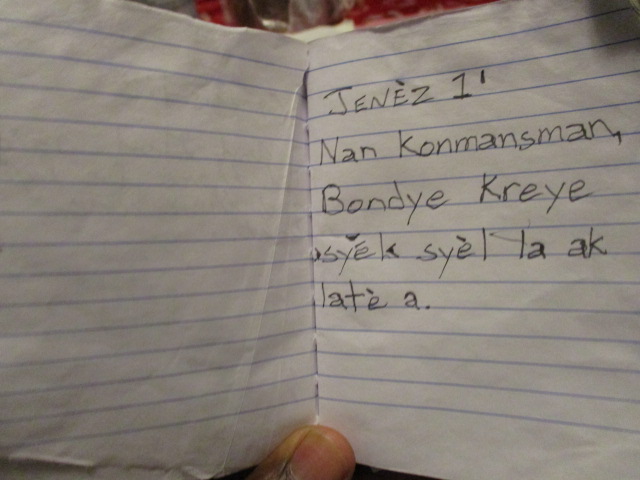 JENÈZ 1'
Nan Konmansman,
Bondye Kreye
syèk syèl la ak
latè a.